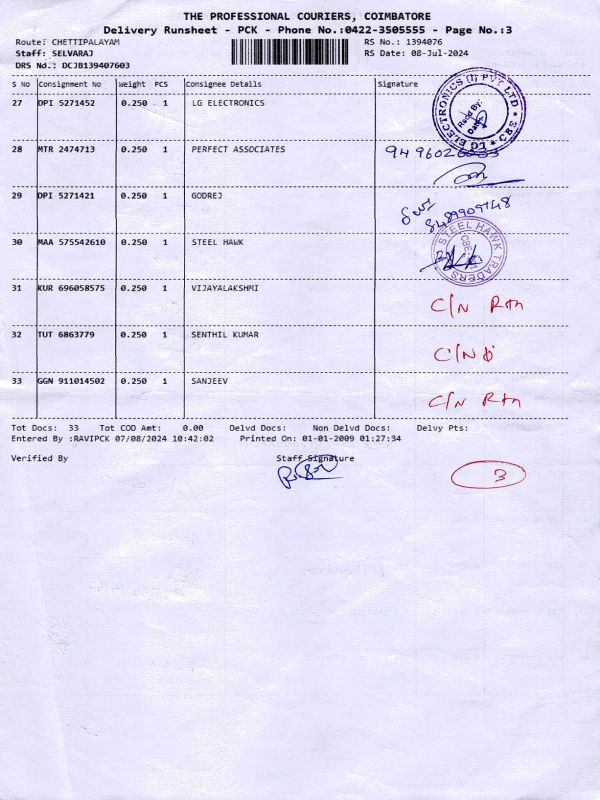 THE PROFESSIONAL COURIERS, COIMBATORE
Delivery Runsheet - PCK - Phone No.:0422-3505555 - Page No.:3
Route: CHETTIPALAYAM RS No.: 1394076
Staff: SELVARAJ RS Date: 08-Jul-2024
DRS No.: DCJB139407603
S No Consignment No Weight PCS Consignee Details Signature
27 DPI 5271452 0.250 1 LG ELECTRONICS
LG ELECTRONICS (I) PVT LTD * CBE *
28 MTR 2474713 0.250 1 PERFECT ASSOCIATES
29 DPI 5271421 0.250 1 GODREJ
8489909748
30 MAA 575542610 0.250 1 STEEL HAWK
STEEL HAWK TRADERS CBE
31 KUR 696058575 0.250 1 VIJAYALAKSHMI
C/N Rtn
32 TUT 6863779 0.250 1 SENTHIL KUMAR
33 GGN 911014502 0.250 1 SANJEEV
C/N Rtn
Tot Docs: 33 Tot COD Amt: 0.00 Delvd Docs: Non Delvd Docs: Delvy Pts:
Entered By :RAVIPCK 07/08/2024 10:42:02 Printed On: 01-01-2009 01:27:34
Verified By Staff Signature
3